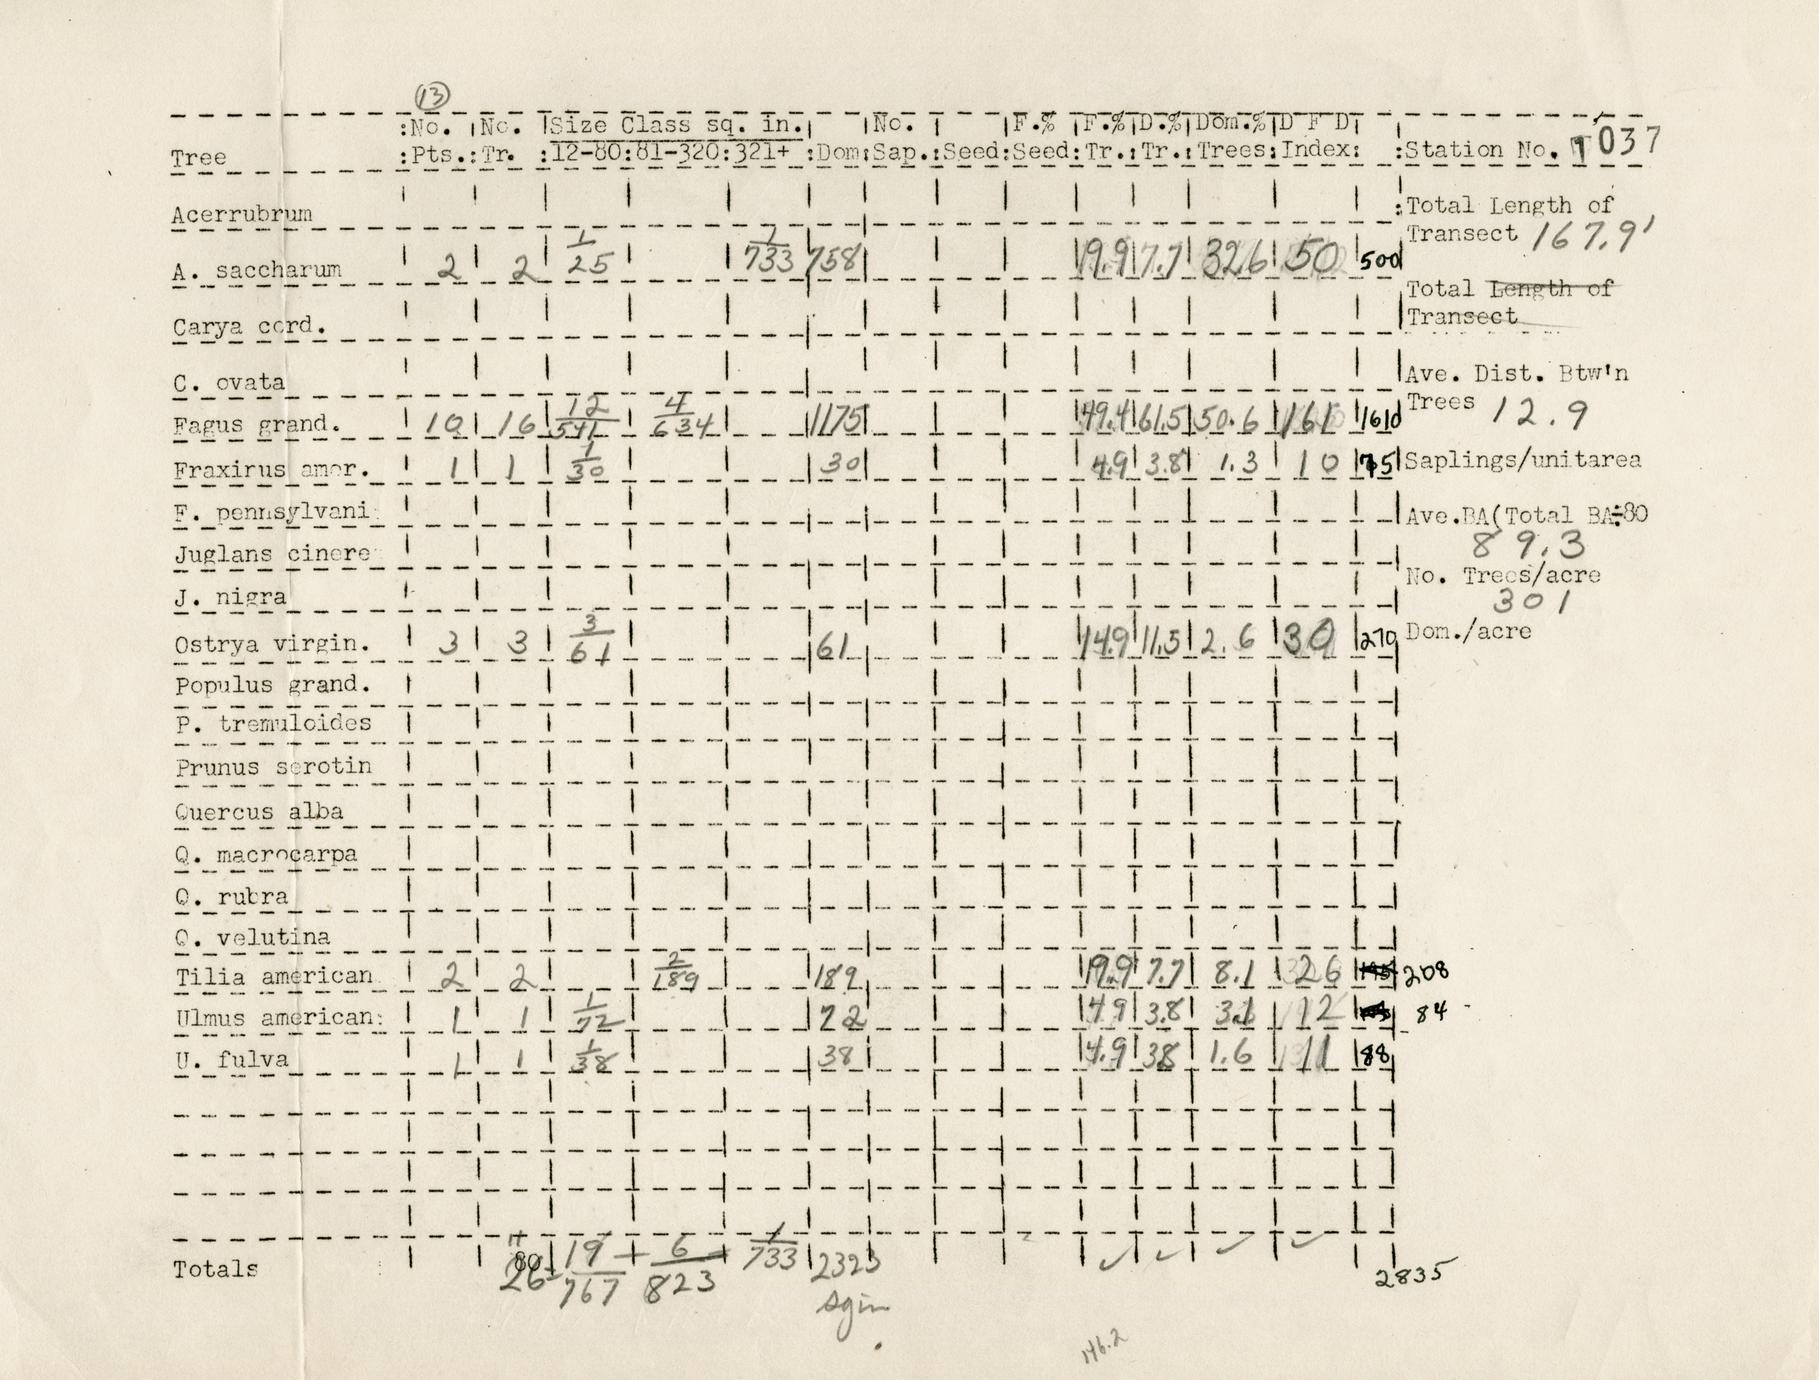 (13)
:No. No. Size Class sq. in. No. F.% F.% D.% Dom.% D F D
Tree :Pts.: Tr. :12-80:81-320:321+ :Dom: Sap.: Seed: Seed: Tr.: Tr.: Trees: Index: :Station No. T037
Acerrubrum :Total Length of
Transect 167.9'
A. saccharum 2 2 1/25 1/733 758 19.9 7.7 32.6 50 500
Total Length of
Carya cord. Transect
C. ovata Ave. Dist. Btw'n
Trees 12.9
Fagus grand. 10 16 12/541 4/634 1175 49.4 61.5 50.6 161 1610
Fraxirus amer. 1 1 1/30 30 4.9 3.8 1.3 10 75 Saplings/unitarea
F. pennsylvani Ave.BA(Total BA÷80
89.3
Juglans cinere
No. Trees/acre
J. nigra 301
Ostrya virgin. 3 3 3/61 61 14.9 11.5 2.6 30 270 Dom./acre
Populus grand.
P. tremuloides
Prunus serotin
Quercus alba
Q. macrocarpa
Q. rubra
Q. velutina
Tilia american 2 2 2/189 189 19.9 7.7 8.1 26 208
Ulmus american: 1 1 1/72 72 4.9 3.8 3.1 12 84
U. fulva 1 1 1/38 38 4.9 38 1.6 11 88
Totals 26 = 19/767 + 6/823 + 1/733 2323 2835
sqin
146.2